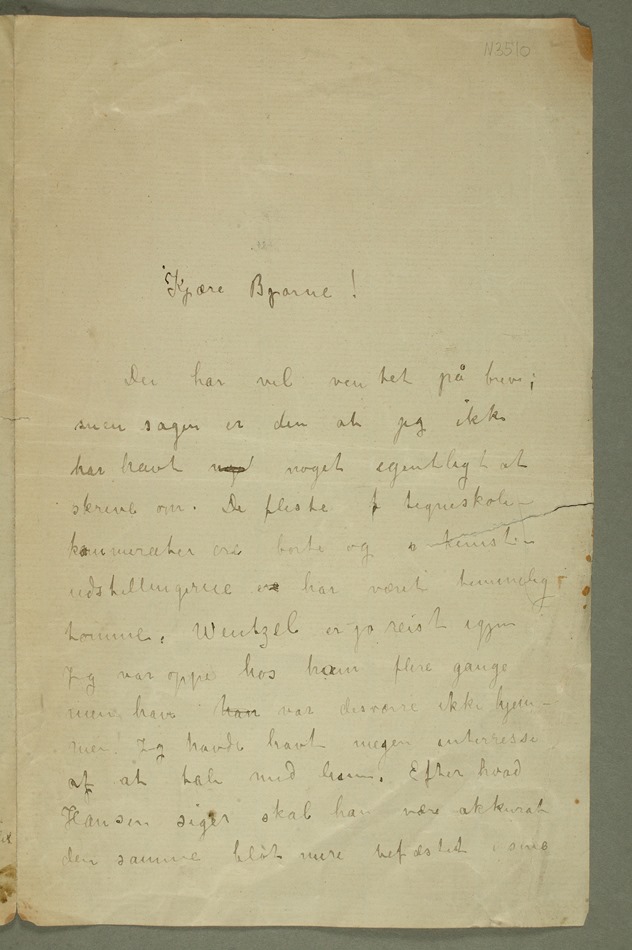 N3510
Kjære Bjarne!
Du har vel ventet på brev;
men sagen er den at jeg ikke
har havt noget egentligt at
skrive om. De fleste f tegneskole-
kammerater ere borte og kunst-
udstillingerne har været temmelig
tomme. Wentzel er jo reist igjen
Jeg var oppe hos ham flere gange
men han han var desværre ikke hjem-
me. Jeg havde havt megen interresse
af at tale med ham. Efter hvad
Hansen siger skal han være akkurat
den samme blot mere befæstet i sine